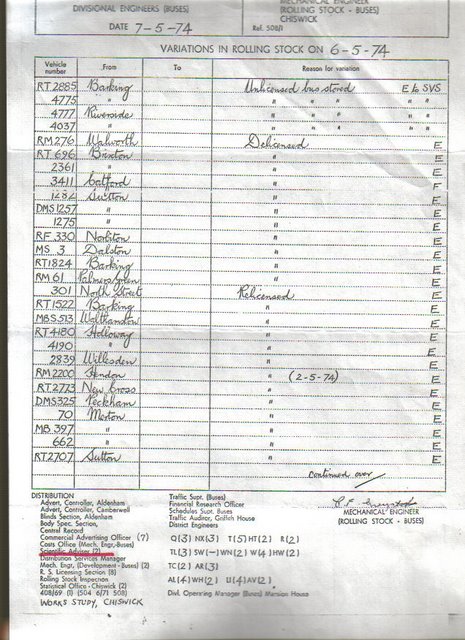 DIVISIONAL ENGINEERS (BUSES)
MECHANICAL ENGINEER
(ROLLING STOCK - BUSES)
CHISWICK
DATE 7-5-74
Ref. 508/1
VARIATIONS IN ROLLING STOCK ON 6-5-74
Vehicle number From To Reason for variation
RT 2885 Barking Unlicensed bus stored E to SVS
4775 " " " " " "
4777 Riverside " " " " "
4037 " " " " " "
RM 276 Walworth Delicensed E
RT 696 Brixton " E
2361 " " E
3411 Catford " E
1282 Sutton " E
DMS 1257 " " E
1275 " " E
RF 330 Norbiton " E
MS 3 Dalston " E
RT 1824 Barking " E
RM 61 Palmers Green " E
301 North Street Relicensed E
RT 1522 Barking " E
MBS 513 Walthamstow " E
RT 4180 Holloway " E
4190 " " E
2839 Willesden " E
RM 2200 Hendon " (2-5-74) E
RT 2773 New Cross " E
DMS 325 Peckham " E
70 Merton " E
MB 397 " " E
662 " " E
RT 2707 Sutton " E
continued over
DISTRIBUTION
Advert, Controller, Aldenham
Advert, Controller, Camberwell
Blinds Section, Aldenham
Body Spec. Section,
Central Record
Commercial Advertising Officer (7)
Costs Office (Mech. Engr-Buses)
Scientific Adviser (2)
Distribution Services Manager
Mech. Engr, (Development-Buses) (2)
R. S. Licensing Section (8)
Rolling Stock Inspection
Statistical Office - Chiswick (2)
408/69 (1) (504 6/71 508)
WORKS STUDY, CHISWICK
Traffic Supt. (Buses)
Financial Research Officer
Schedules Supt. Buses
Traffic Auditor, Griffith House
District Engineers
Q(3) NX(3) T(5) HT(2) R(2)
TL(3) SW(-) WN(2) W(4) HW(2)
TC(2) AR(3)
AL(4) WH(2) U(4) AV(2)
Divl. Operating Manager (Buses) Mansion House
MECHANICAL ENGINEER
(ROLLING STOCK - BUSES)